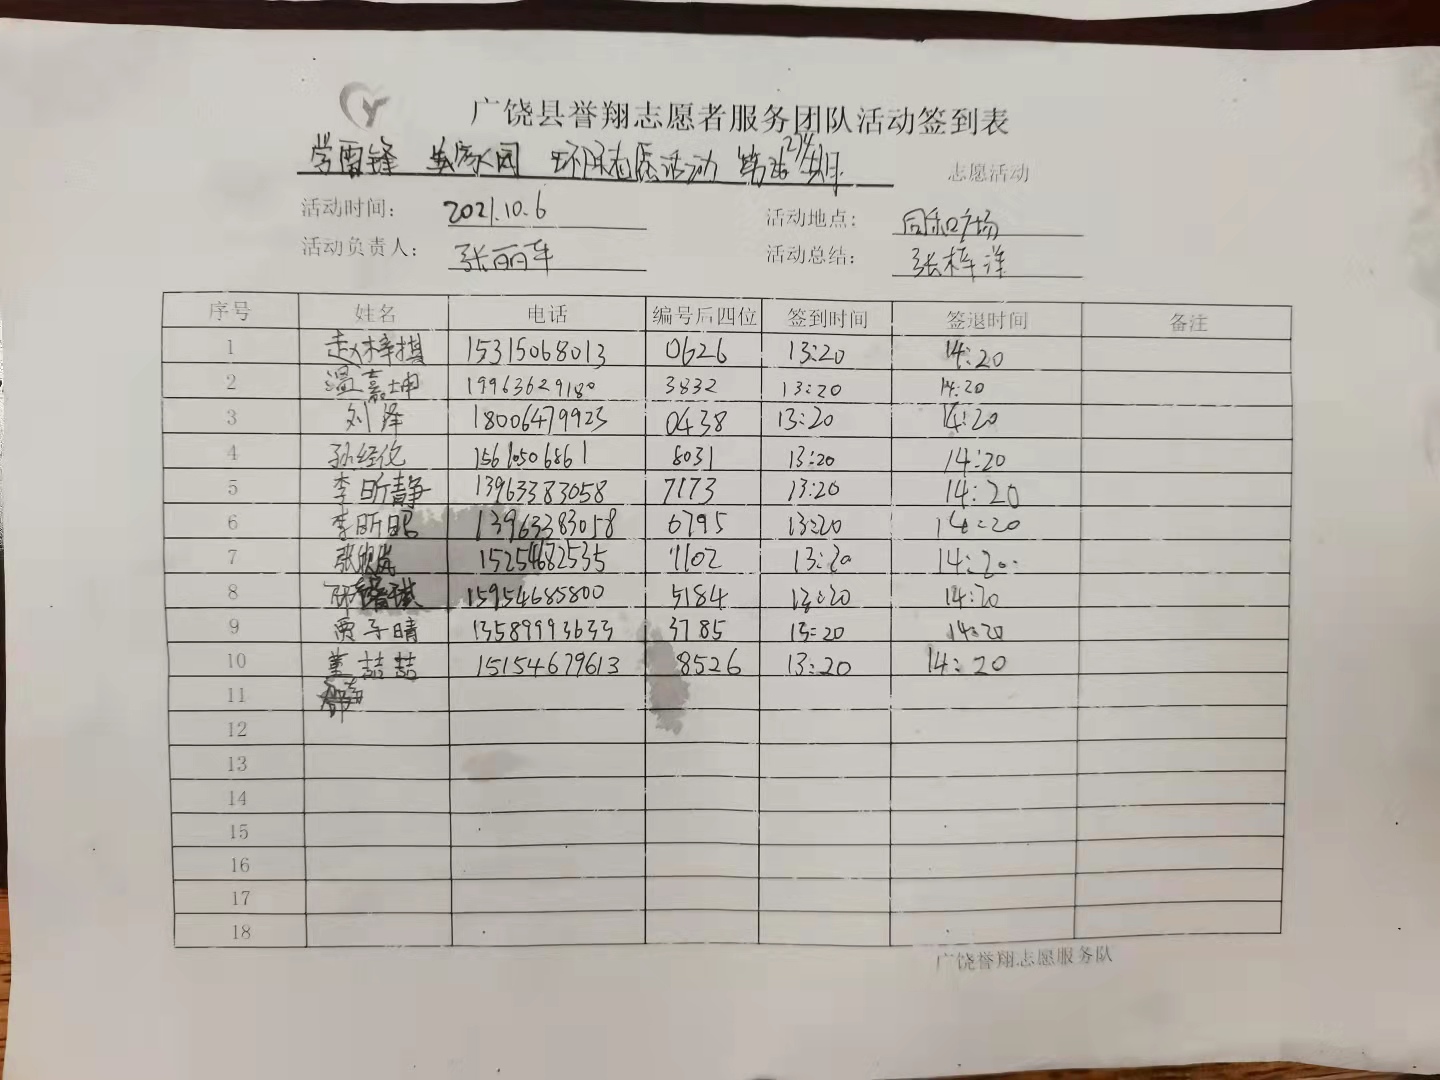 广饶县誉翔志愿者服务团队活动签到表
学雷锋 美家园 环保志愿活动 第 期 志愿活动
活动时间： 2021.10.6 活动地点： 同和广场
活动负责人： 张丽华 活动总结： 张梓洋
序号 姓名 电话 编号后四位 签到时间 签退时间 备注
1 赵梓棋 15315068013 0626 13:20 14:20
2 温嘉坤 19963629180 3832 13:20 14:20
3 刘泽 18006479923 0438 13:20 14:20
4 孙经伦 15610506861 8031 13:20 14:20
5 李昕静 13963383058 7173 13:20 14:20
6 李昕昭 13963383058 6795 13:20 14:20
7 张 15254682535 1102 13:20 14:20
8 15954685800 5184 13:20 14:20
9 贾子晴 13589993633 3785 13:20 14:20
10 姜喆喆 15154679613 8526 13:20 14:20
11
12
13
14
15
16
17
18
广饶誉翔志愿服务队